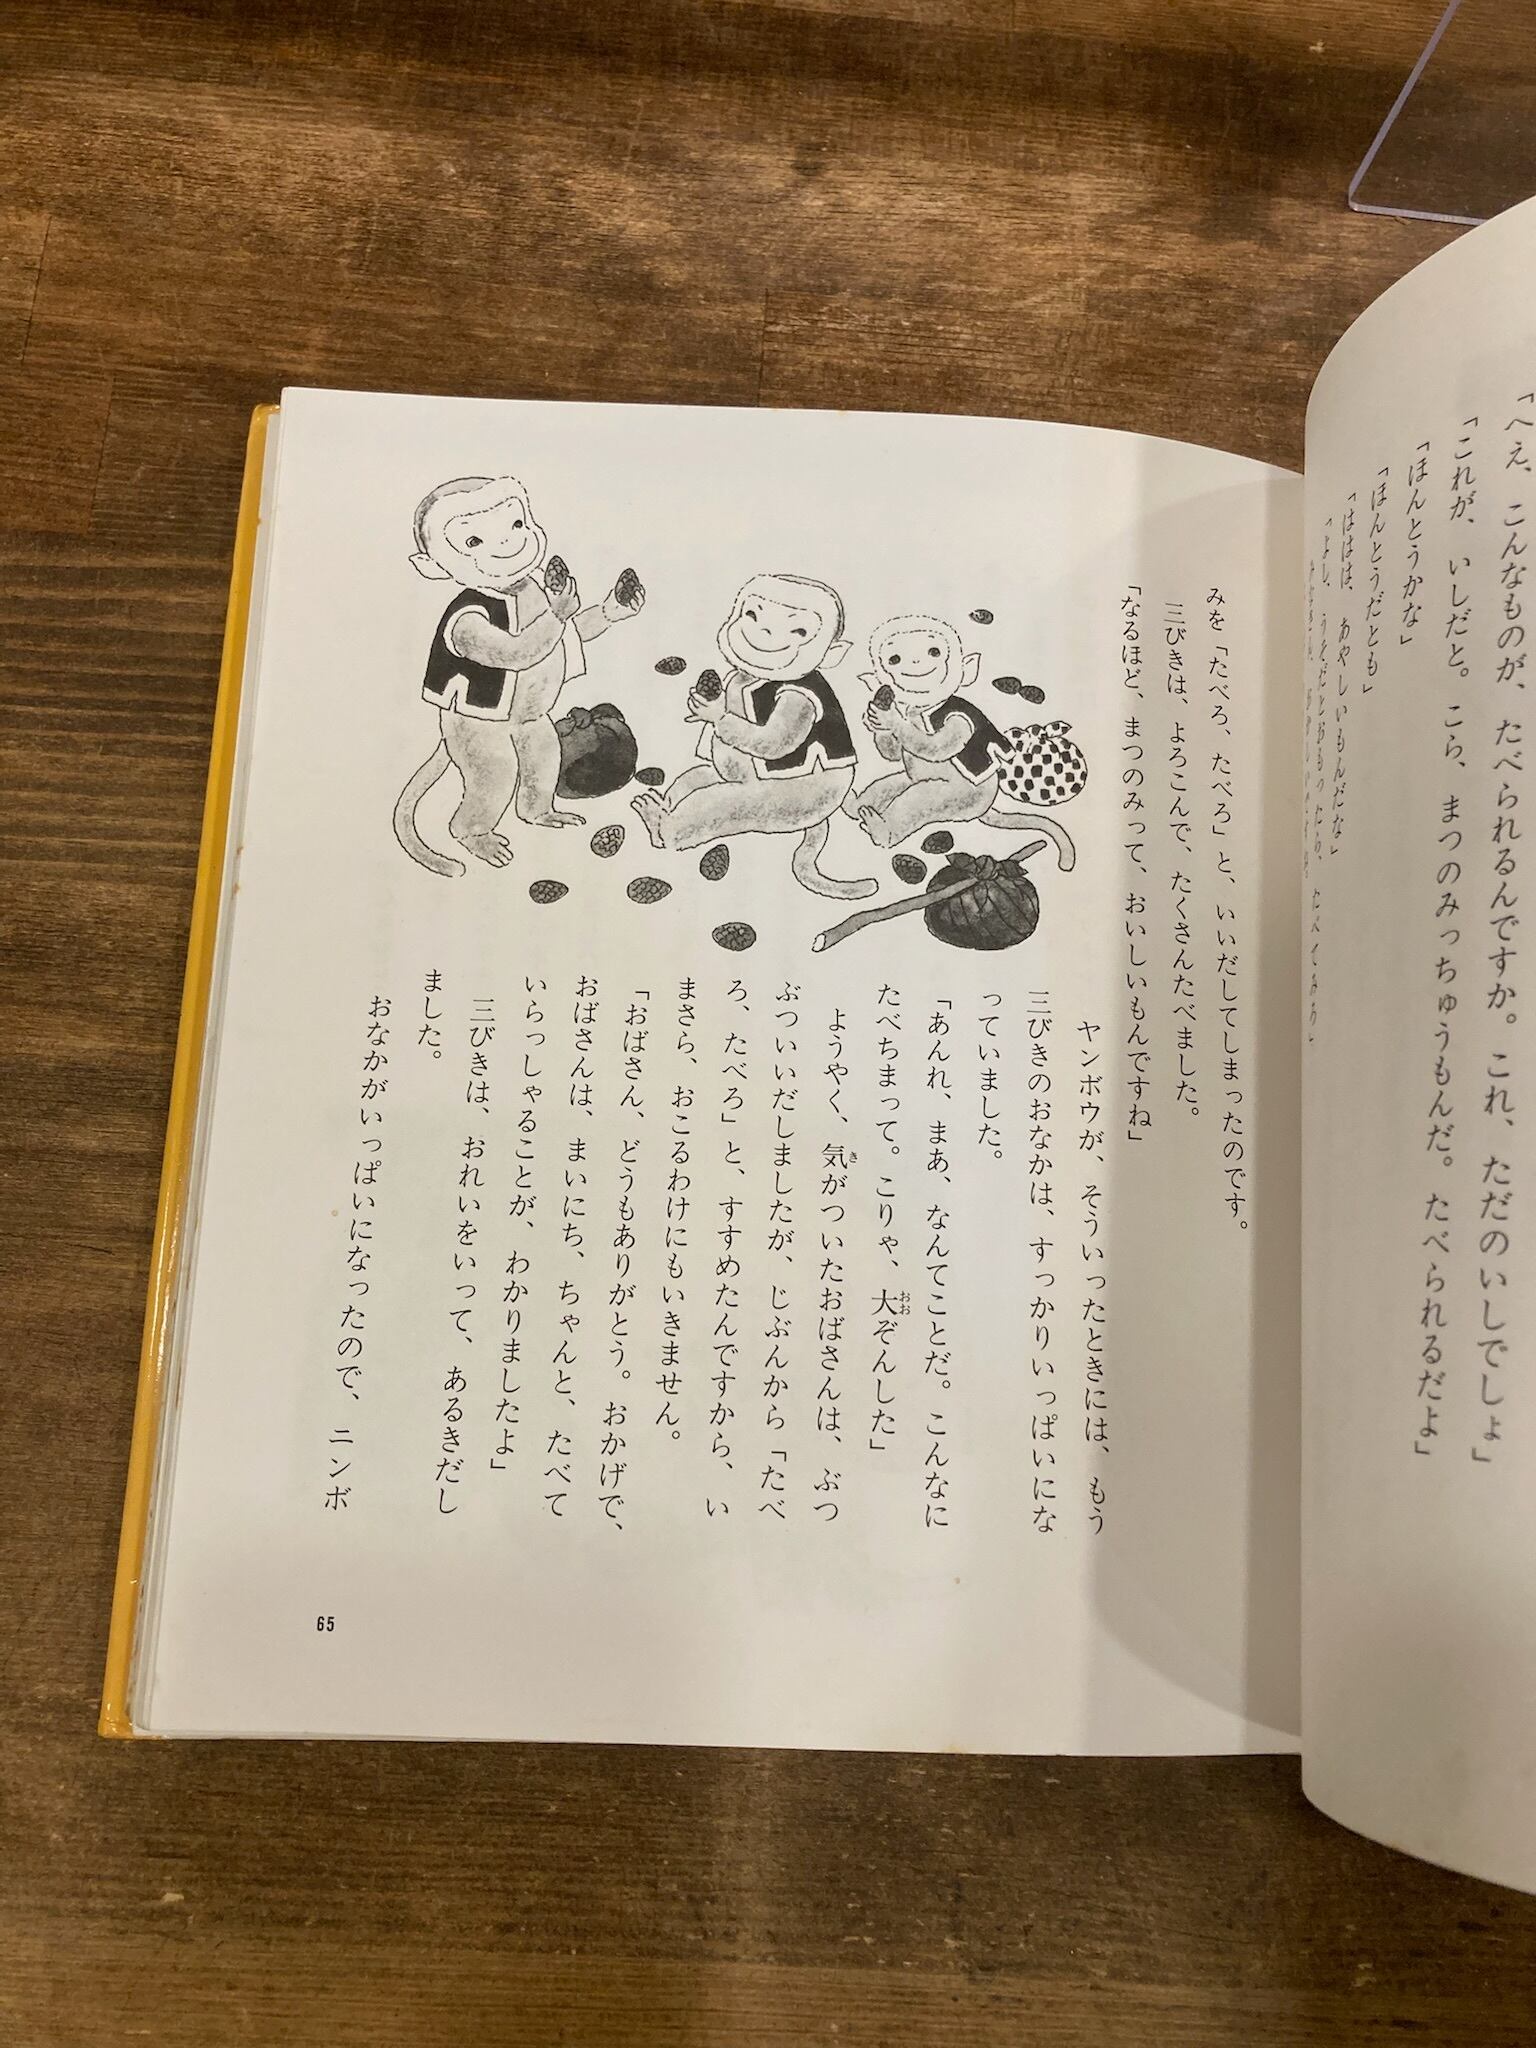 「へえ、こんなものが、たべられるんですか。これ、ただのいしでしょ」
「これが、いしだと。こら、まつのみっちゅうもんだ。たべられるだよ」
「ほんとうかな」
「ほんとうだとも」
「ははは、あやしいもんだな」
「よし、うそだとおもったら、たべてみろ」
みを「たべろ、たべろ」と、いいだしてしまったのです。
三びきは、よろこんで、たくさんたべました。
「なるほど、まつのみって、おいしいもんですね」
ヤンボウが、そういったときには、もう
三びきのおなかは、すっかりいっぱいにな
っていました。
「あんれ、まあ、なんてことだ。こんなに
たべちまって。こりゃ、大おおぞんした」
ようやく、気きがついたおばさんは、ぶつ
ぶついいだしましたが、じぶんから「たべ
ろ、たべろ」と、すすめたんですから、い
まさら、おこるわけにもいきません。
「おばさん、どうもありがとう。おかげで、
おばさんは、まいにち、ちゃんと、たべて
いらっしゃることが、わかりましたよ」
三びきは、おれいをいって、あるきだし
ました。
おなかがいっぱいになったので、ニンボ
65